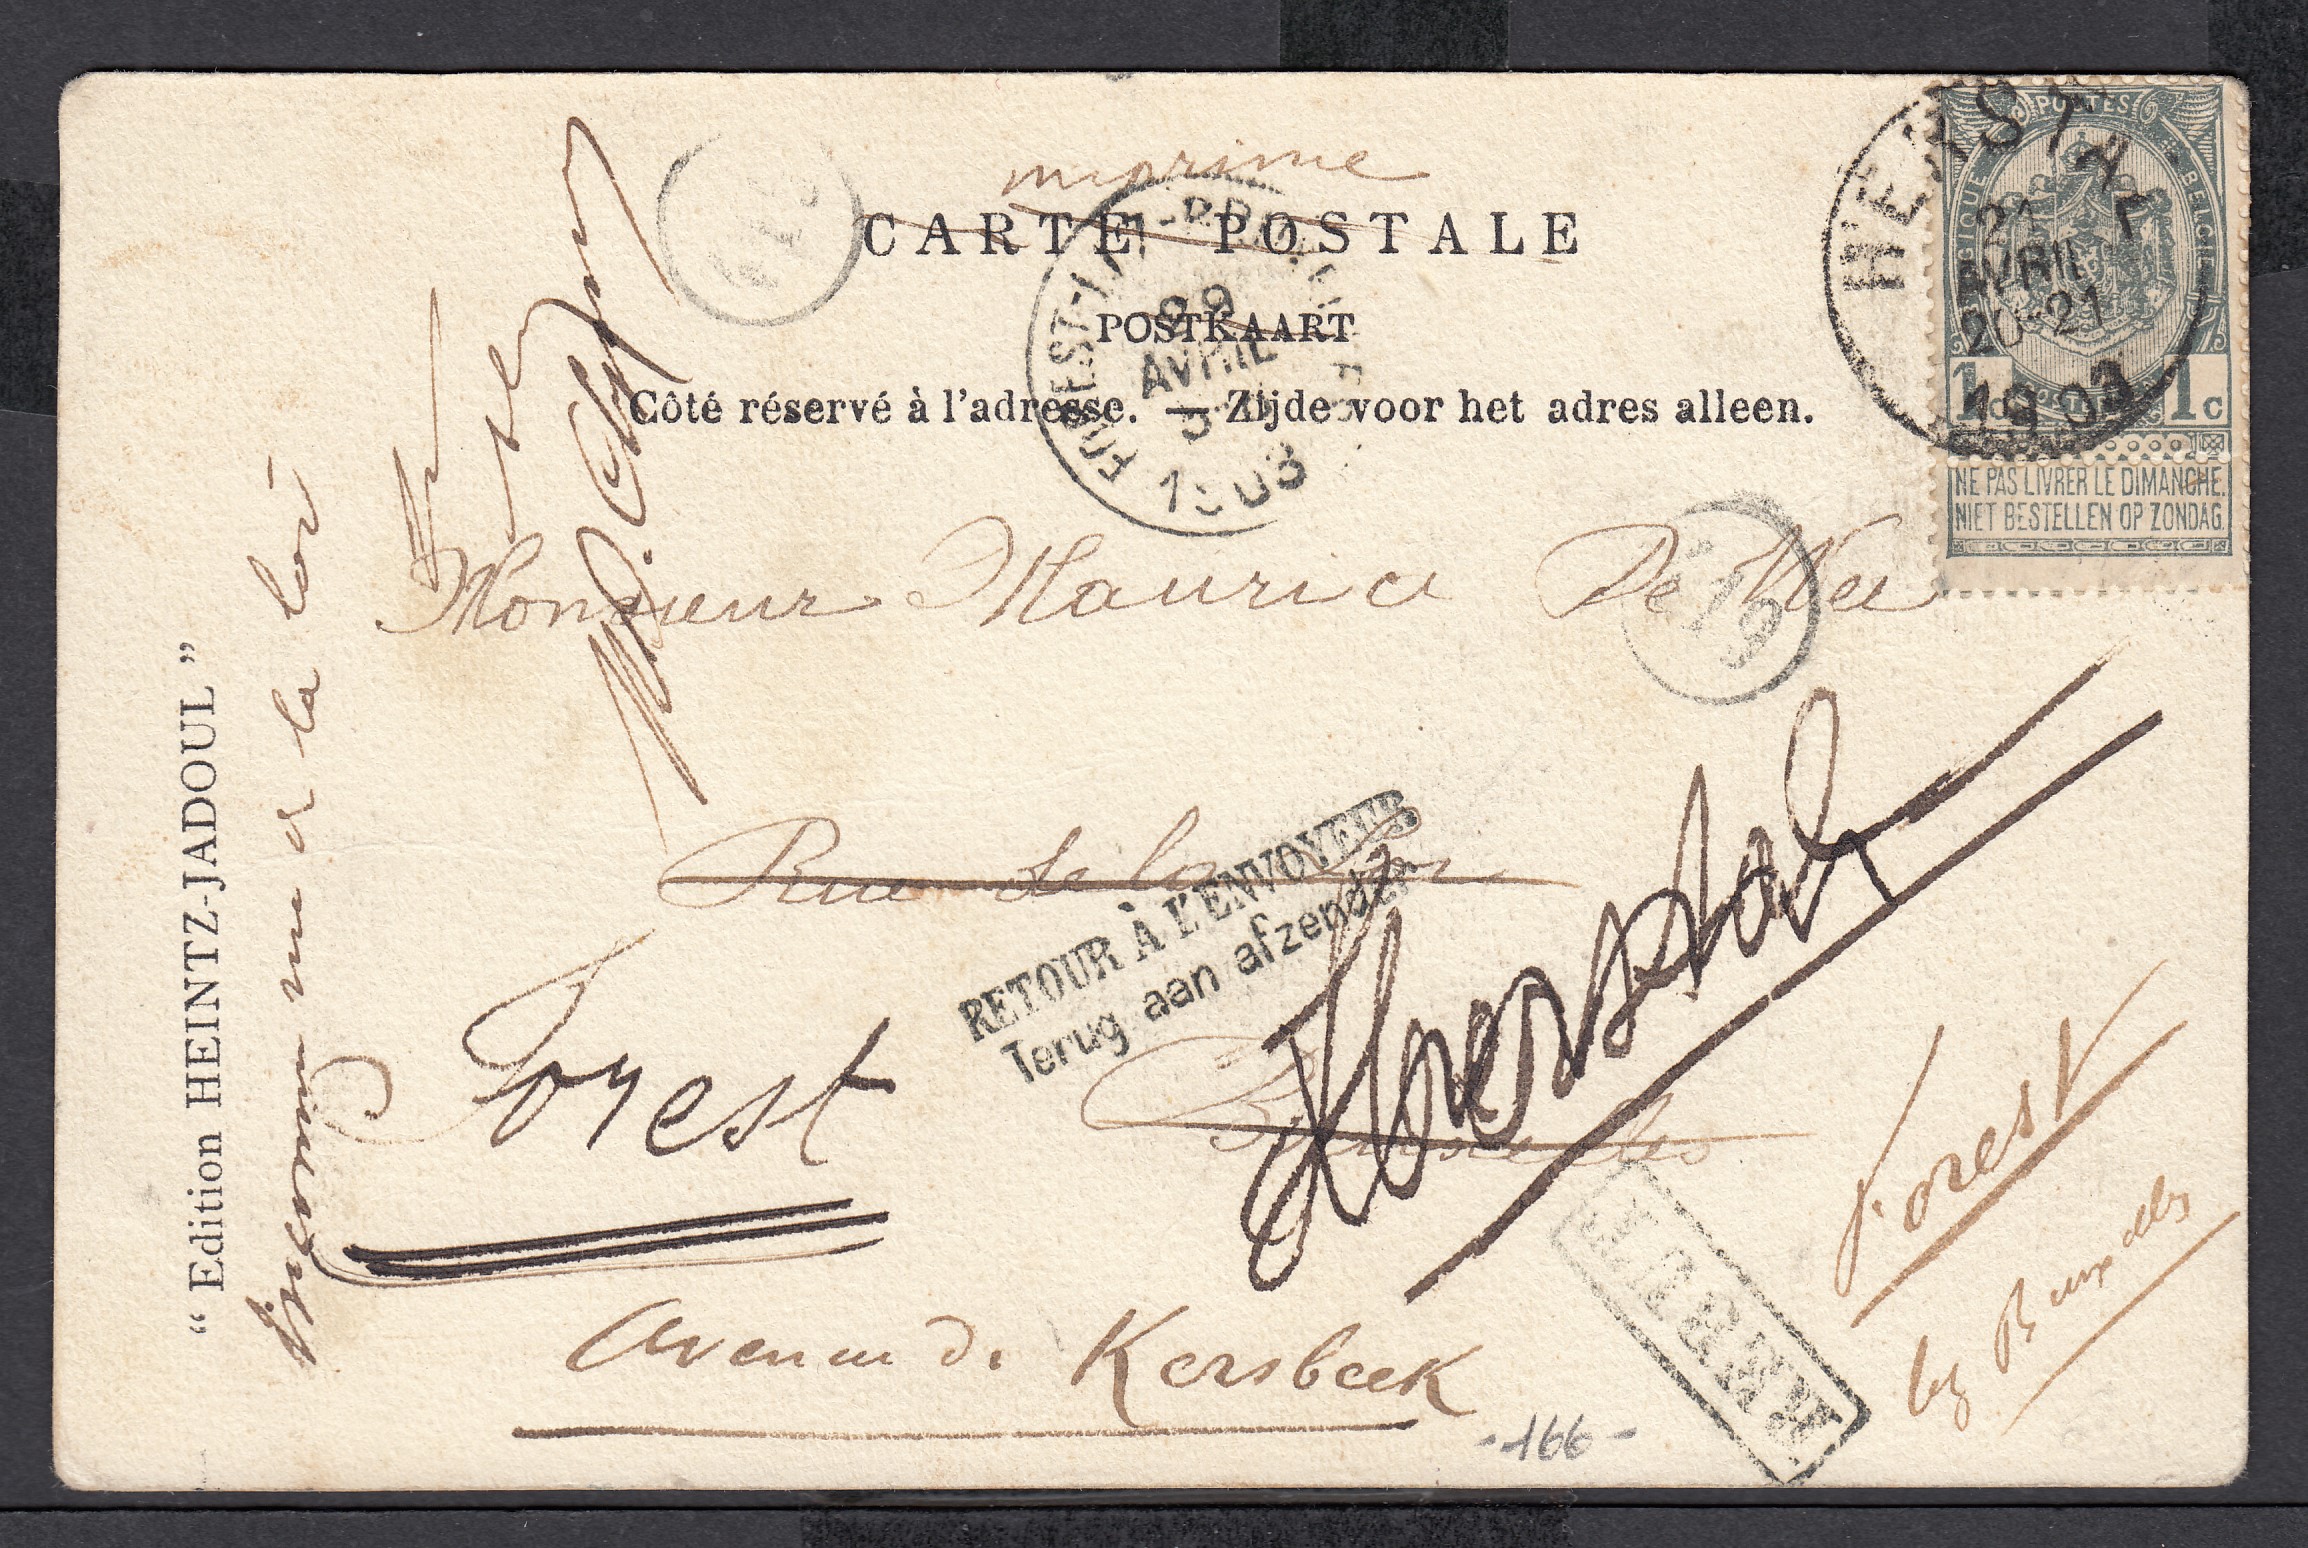 imprime
CARTE POSTALE
POSTKAART
Côté réservé à l'adresse. — Zijde voor het adres alleen.
HERSTAL
21
AVRIL
20-21
1903
POSTES
BELGIQUE BELGIË
1c 1c
NE PAS LIVRER LE DIMANCHE.
NIET BESTELLEN OP ZONDAG.
FOREST-
AVRIL
1903
Monsieur Maurice De Wée
19
Rue de la
RETOUR À L'ENVOYEUR
Terug aan afzender
Bruxelles
Herstal
Forest
Avenue de Kersbeek
Forest
lez Bruxelles
REBUT
-166-
"Edition HEINTZ-JADOUL"
Inconnu r de la loi